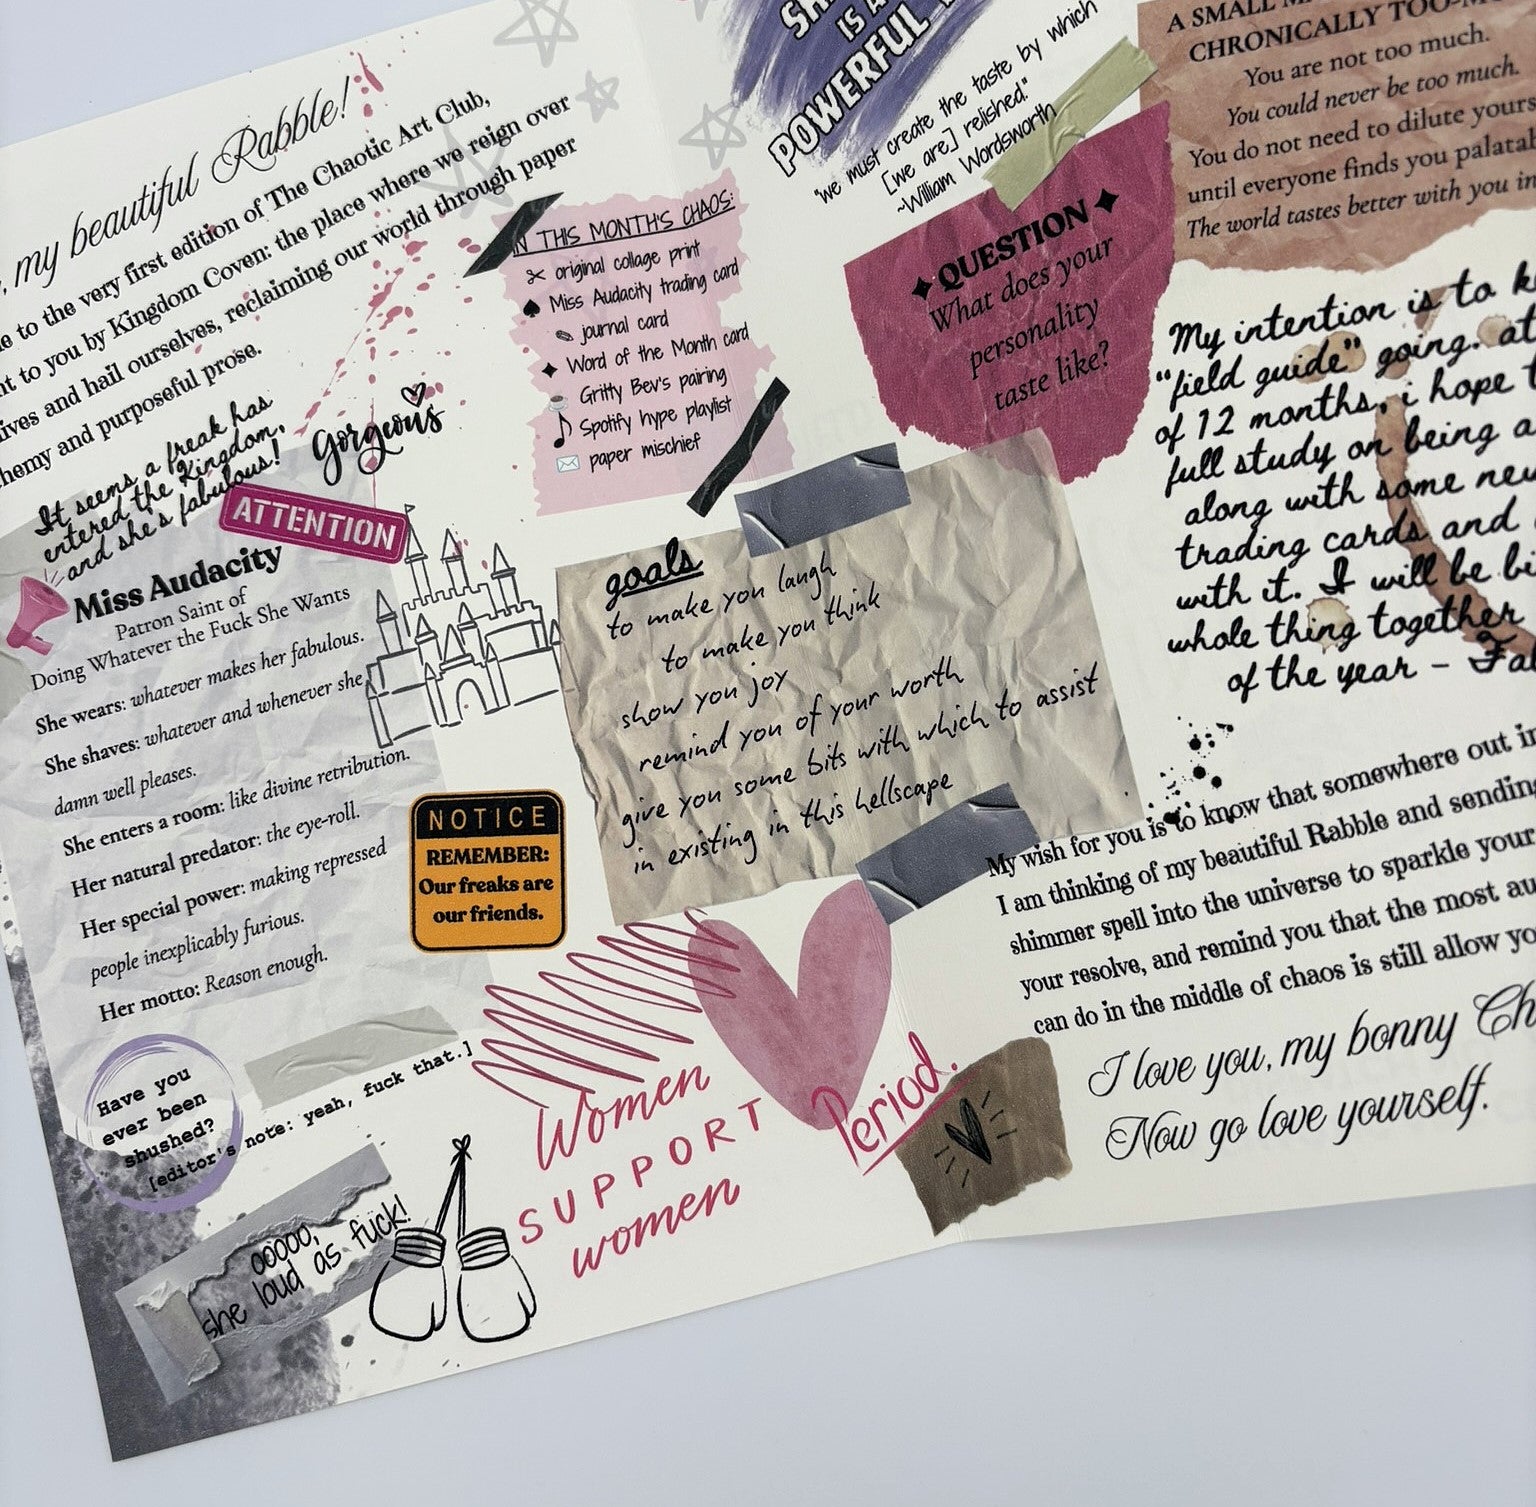 my beautiful Rabble!
to the very first edition of The Chaotic Art Club,
to you by Kingdom Coven: the place where we reign over
and hail ourselves, reclaiming our world through paper
and purposeful prose.
It seems a freak has
entered the Kingdom,
and she's fabulous!
Gorgeous
ATTENTION
Miss Audacity
Patron Saint of
Doing Whatever the Fuck She Wants
She wears: whatever makes her fabulous.
She shaves: whatever and whenever she
damn well pleases.
She enters a room: like divine retribution.
Her natural predator: the eye-roll.
Her special power: making repressed
people inexplicably furious.
Her motto: Reason enough.
Have you
ever been
shushed?
[editor's note: yeah, fuck that.]
ooooo,
she loud as fuck!
IN THIS MONTH'S CHAOS:
original collage print
Miss Audacity trading card
journal card
Word of the Month card
Gritty Bev's pairing
Spotify hype playlist
paper mischief
NOTICE
REMEMBER:
Our freaks are
our friends.
goals
to make you laugh
to make you think
show you joy
remind you of your worth
give you some bits with which to assist
in existing in this hellscape
Women
SUPPORT
women
Period.
IS A
POWERFUL
"we must create the taste by which
[we are] relished."
~William Wordsworth
QUESTION
What does your
personality
taste like?
A SMALL
CHRONICALLY
You are not too much.
You could never be too much.
You do not need to dilute
until everyone finds you
The world tastes better with you in
My intention is to
"field guide" going. at
of 12 months, i hope
full study on being a
along with some new
trading cards and
with it. I will be
whole thing together
of the year -
My wish for you is to know that somewhere out in
I am thinking of my beautiful Rabble and sending
shimmer spell into the universe to sparkle your
your resolve, and remind you that the most
can do in the middle of chaos is still allow
I love you, my bonny
Now go love yourself.